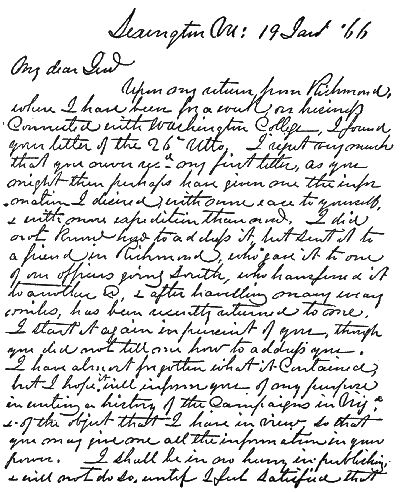 Lexington Va: 19 Jan '66
My dear Genl
Upon my return from Richmond,
where I have been for a week on business
Connected with Washington College, I found
your letter of the 26th Ulto. I regret very much
that you never recd my first letter, as you
might then perhaps have given me the infor
mation I desired, with more ease to yourself,
& with more expedition than now. I did
not know how to address it, but sent it to
a friend in Richmond, who gave it to one
of our officers going South, who transferred it
to another &c, & after handling many weary
months, has been recently returned to me.
I start it again in pursuit of you, though
you did not tell me how to address you.
I have almost forgotten what it Contained,
but I hope it will inform you of my purpose
in writing a history of the Campaigns in Virga
& of the object that I have in view, so that
you may give me all the information in your
power. I shall be in no hurry in publishing,
& will not do so, until I feel satisfied that